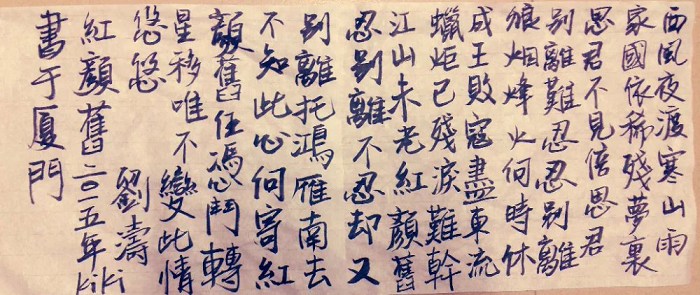 西風夜渡寒山雨
家國依稀殘夢裏
思君不見倍思君
别離難忍忍别離
狼烟烽火何時休
成王敗寇盡東流
蠟炬已殘淚難幹
江山未老紅顔舊
忍别離不忍却又
别離托鴻雁南去
不知此心何寄紅
顔舊任憑鬥轉
星移唯不變此情
悠悠 劉濤
紅顔舊二〇一五年kiki
書于厦門